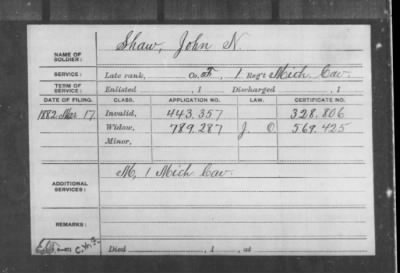 NAME OF SOLDIER: Shaw, John N.
SERVICE: Late rank, Co. 1 Reg't Mich. Cav.
TERM OF SERVICE: Enlisted , 1 Discharged , 1
DATE OF FILING. CLASS. APPLICATION NO. LAW. CERTIFICATE NO.
1882 Mar 17. Invalid, 443.357 328.806
Widow, 789.287 J. O 569.425
Minor,
ADDITIONAL SERVICES: M, 1 Mich Cav.
REMARKS:
Died , 1 , at